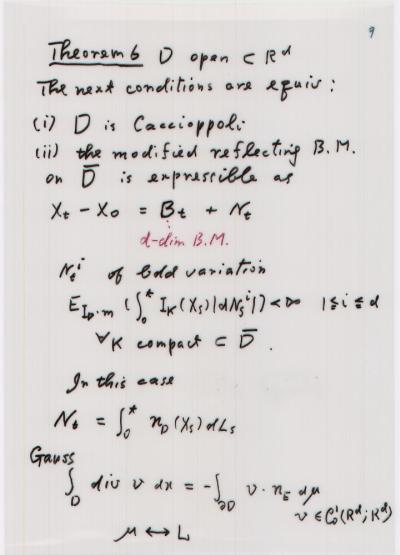 9
Theorem 6 D open ⊂ R^d
The next conditions are equiv :
(i) D is Caccioppoli
(ii) the modified reflecting B.M.
on D̅ is expressible as
X_t - X_0 = B_t + N_t
d-dim B.M.
N_t^i of bdd variation
E_{I_D·m} (∫_0^t I_K(X_s)|dN_s^i|) < ∞ 1 ≦ i ≦ d
∀K compact ⊂ D̅ .
In this case
N_t = ∫_0^t n_D(X_s) dL_s
Gauss
∫_D div v dx = -∫_{∂D} v · n_E dμ
v ∈ C_0^1(R^d; R^d)
μ ↔ L